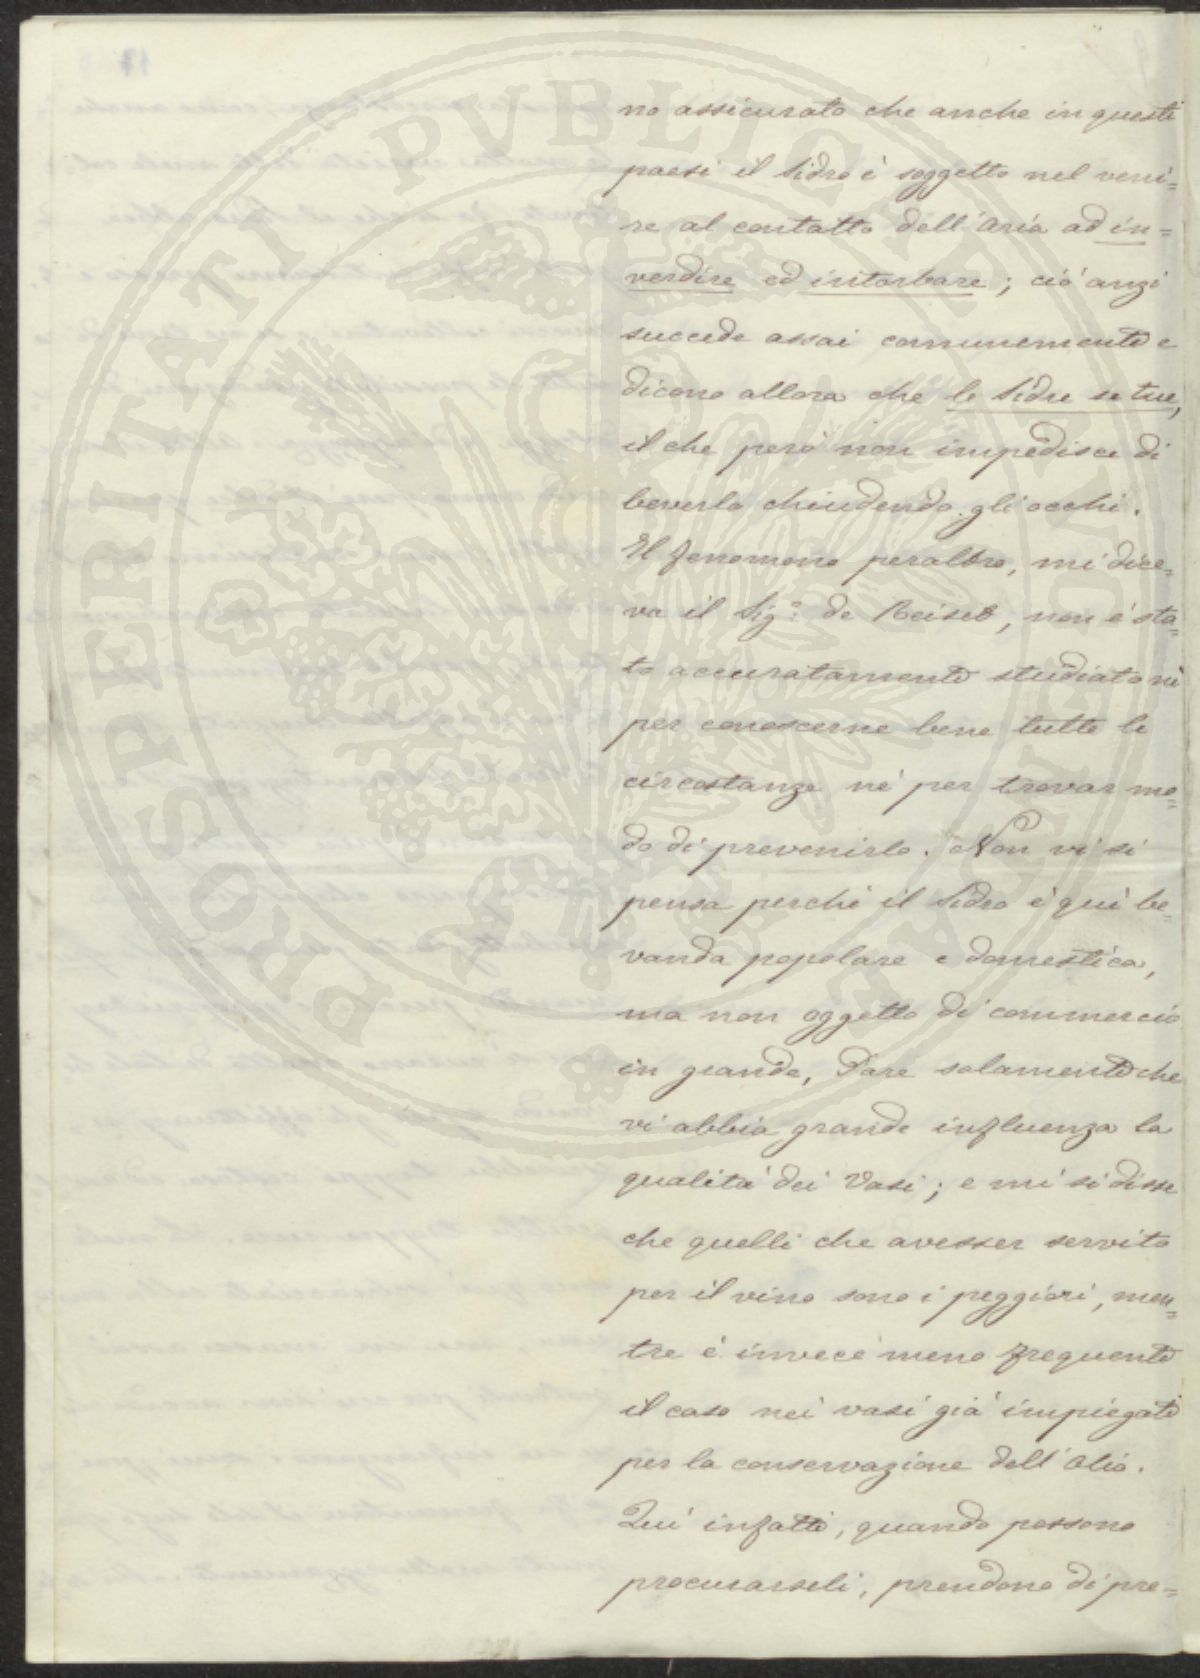 no assicurato che anche in questi
paesi il Sidro è soggetto nel veni=
re al contatto dell'Aria ad in=
verdire ed intorbare; ciò anzi
succede assai comunemente e
dicono allora che le Sidre se tue,
il che però non impedisce di
beverlo chiudendo gli occhi.
Il fenomono peraltro, mi dice=
va il Sig.r de Reiset, non è sta=
to accuratamente studiato nè
per conoscerne bene tutte le
circostanze nè per trovar mo=
do di prevenirlo. Non vi si
pensa perchè il Sidro è quì be=
vanda popolare e domestica,
ma non oggetto di commercio
in grande, Pare solamente che
vi abbia grande influenza la
qualità dei Vasi; e mi si disse
che quelli che avesser servito
per il vino sono i peggiori, men=
tre è invece meno frequente
il caso nei vasi già impiegati
per la conservazione dell'Olio.
Quì infatti, quando possono
procurarseli, prendono di pre=
PROSPERITATI PVBLICAE AVGENDAE